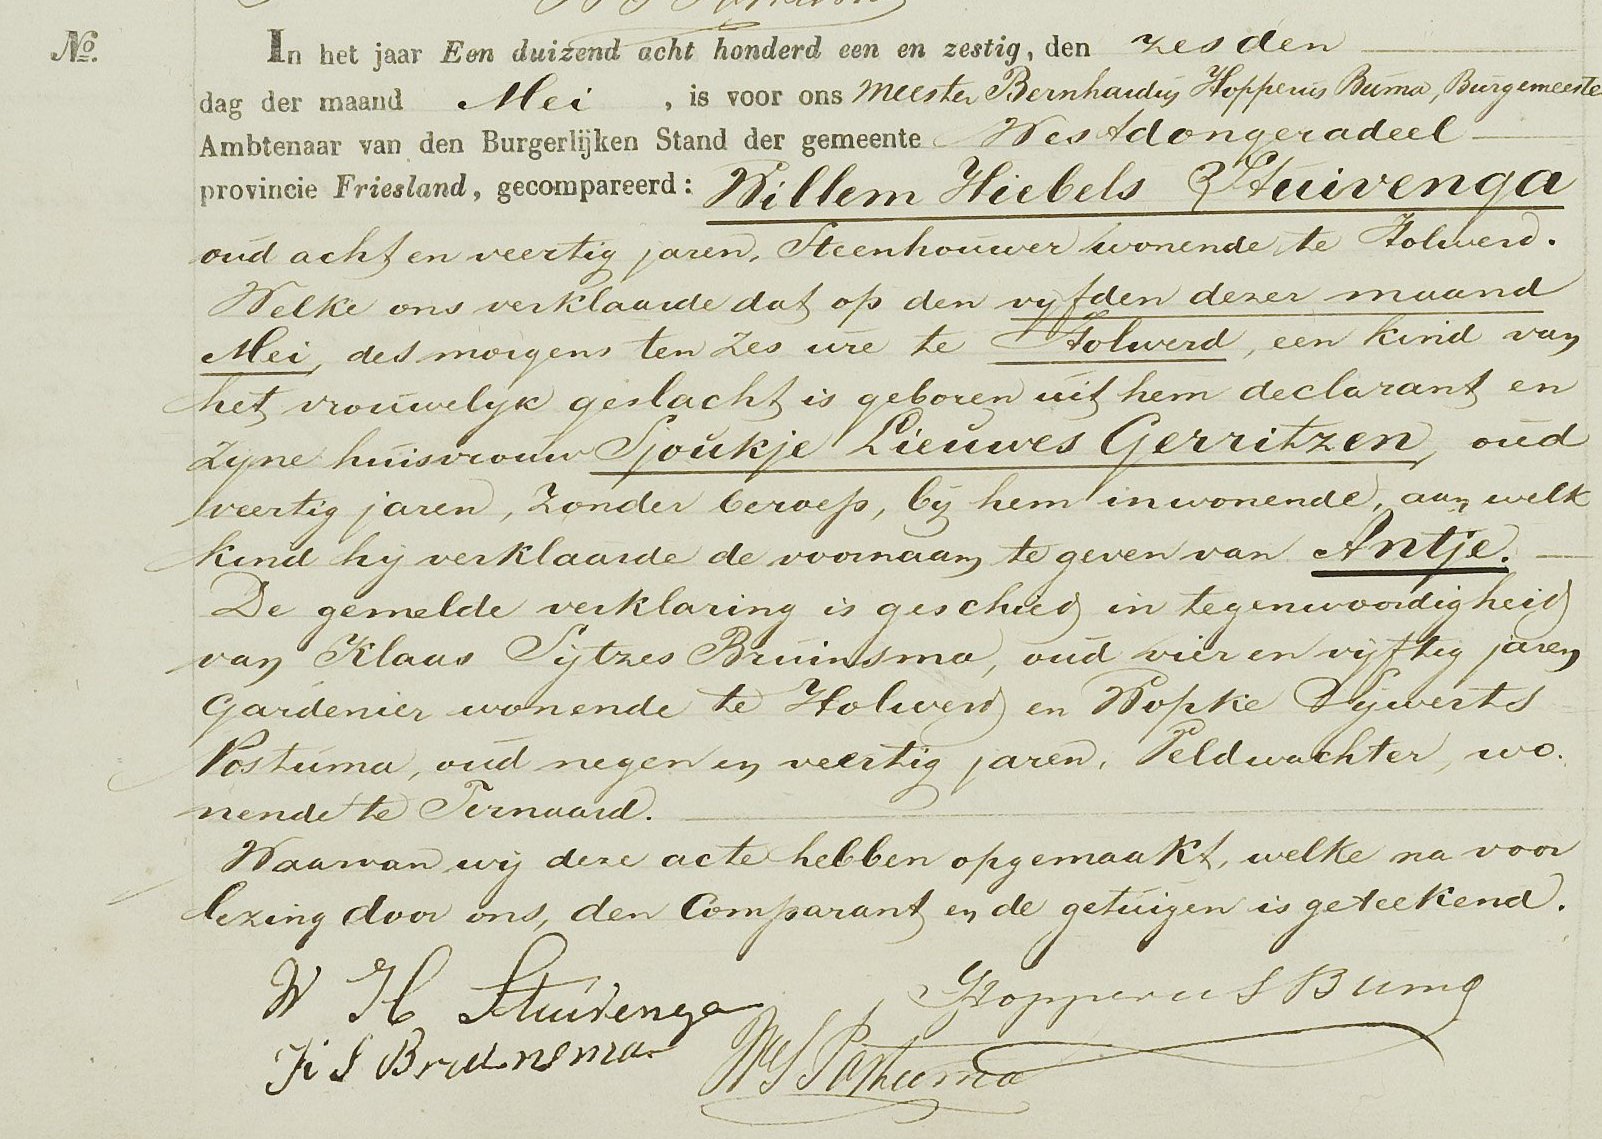 No.
In het jaar Een duizend acht honderd een en zestig, den zesden
dag der maand Mei, is voor ons Meester Bernhardus Hopperus Buma, Burgemeester
Ambtenaar van den Burgerlijken Stand der gemeente Westdongeradeel
provincie Friesland, gecompareerd: Willem Hiebels Stuivenga
oud acht en veertig jaren, Steenhouwer wonende te Holwerd.
Welke ons verklaarde dat op den vyfden dezer maand
Mei, des morgens ten zes ure te Holwerd, een kind van
het vrouwelyk geslacht is geboren uit hem declarant en
zyne huisvrouw Sjoukje Lieuwes Gerritzen, oud
veertig jaren, zonder beroep, by hem inwonende, aan welk
kind hy verklaarde de voornaam te geven van Antje.
De gemelde verklaring is geschied in tegenwoordigheid
van Klaas Sytzes Bruinsma, oud vier en vyftig jaren
Gardenier wonende te Holwerd en Wopke Sywerts
Postuma, oud negen en veertig jaren, Veldwachter, wo-
nende te Ternaard.
Waarvan wy deze acte hebben opgemaakt, welke na voor
lezing door ons, den Comparant en de getuigen is geteekend.
W H Stuivenga
Hopperus Buma
K S Bruinsma
W S Postuma